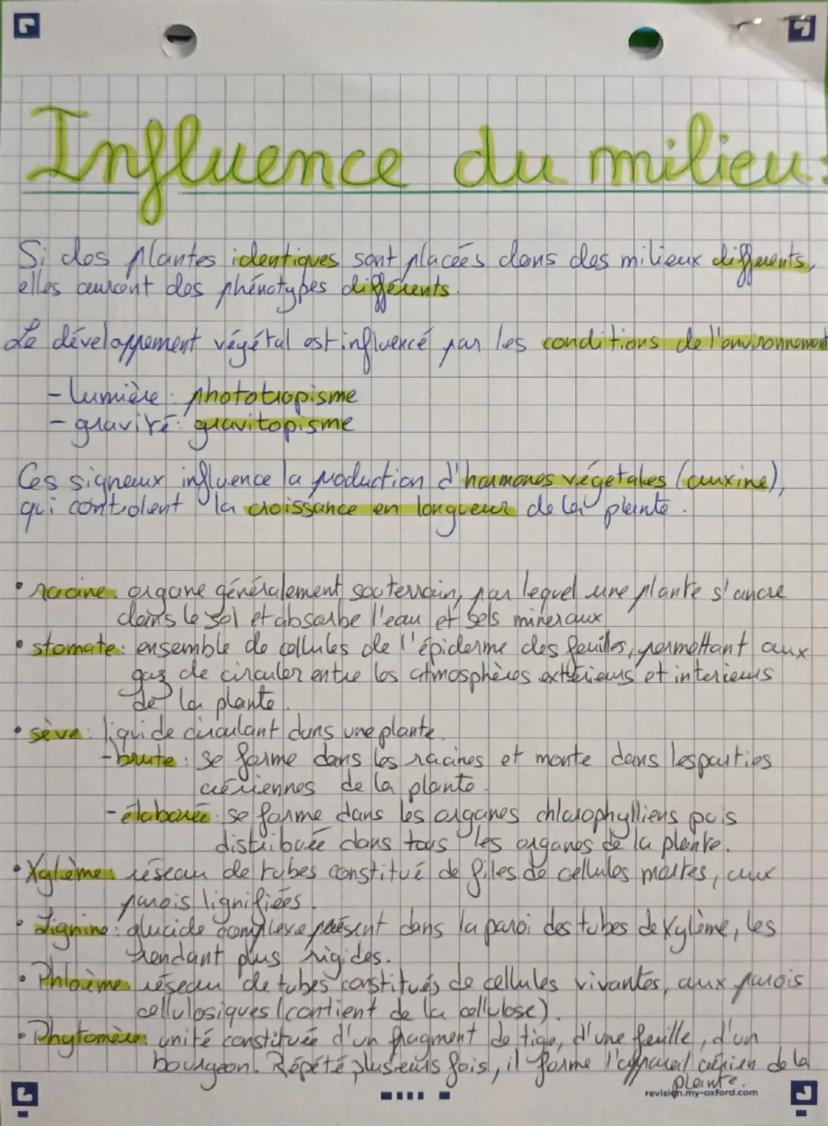 Influence du milieu :
Si des plantes identiques sont placées dans des milieux différents,
elles auront des phénotypes différents.
Le développement végétal est influencé par les conditions de l'environnement
- lumière : phototropisme
- gravité : gravitopisme
Ces signeux influence la production d'hormones végétales (auxine),
qui controlent la croissance en longueur de la plante.
• racine : organe généralement souterrain, par lequel une plante s'ancre
dans le sol et absorbe l'eau et sels minéraux
• stomate : ensemble de cellules de l'épiderme des feuilles, permettant aux
gaz de circuler entre les atmosphères extérieurs et interieurs
de la plante.
• sève : liquide circulant dans une plante.
- brute : se forme dans les racines et monte dans les parties
aériennes de la plante.
- élaborée : se forme dans les organes chlorophylliens puis
distribuée dans tous les organes de la plante.
• Xylème : réseau de tubes constitué de files de cellules mortes, aux
parois lignifiées.
• Lignine : glucide complexe présent dans la paroi des tubes de Xylème, les
rendant plus rigides.
• Phloème : réseau de tubes constitués de cellules vivantes, aux parois
cellulosiques (contient de la cellulose).
• Phytomère : unité constituée d'un fragment de tige, d'une feuille, d'un
bourgeon. Répété plusieurs fois, il forme l'appareil aérien de la
plante.
revision.my-oxford.com